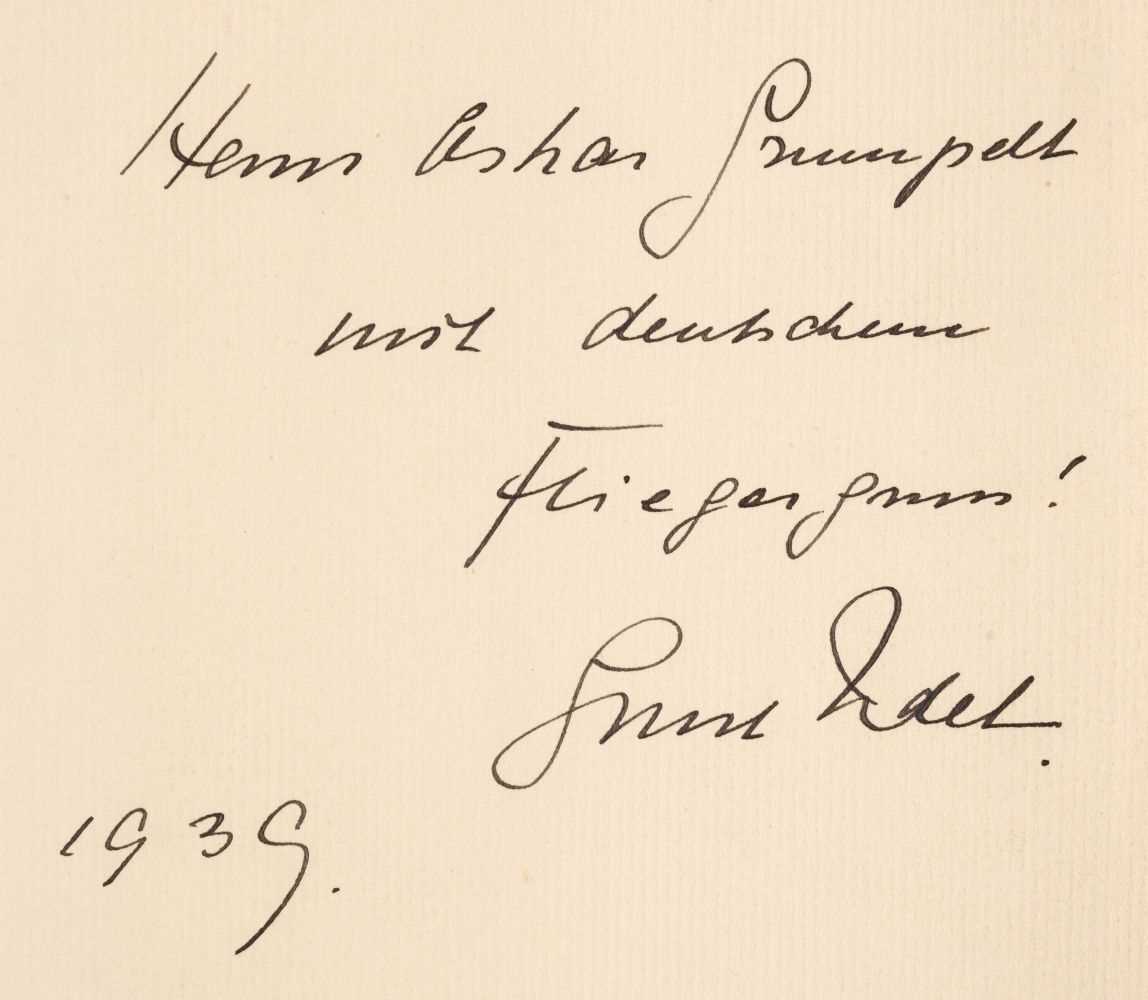 Herrn Oskar Grumpelt
mit deutschem
Fliegergruss!
Ernst Udet.
1939.